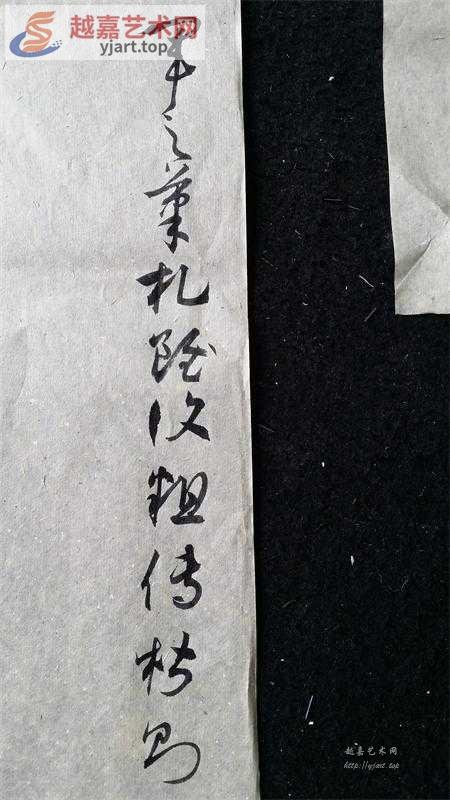 越嘉艺术网
yjart.top
軍之筆札雖復粗傳楷則
越嘉艺术网
http://yjart.top